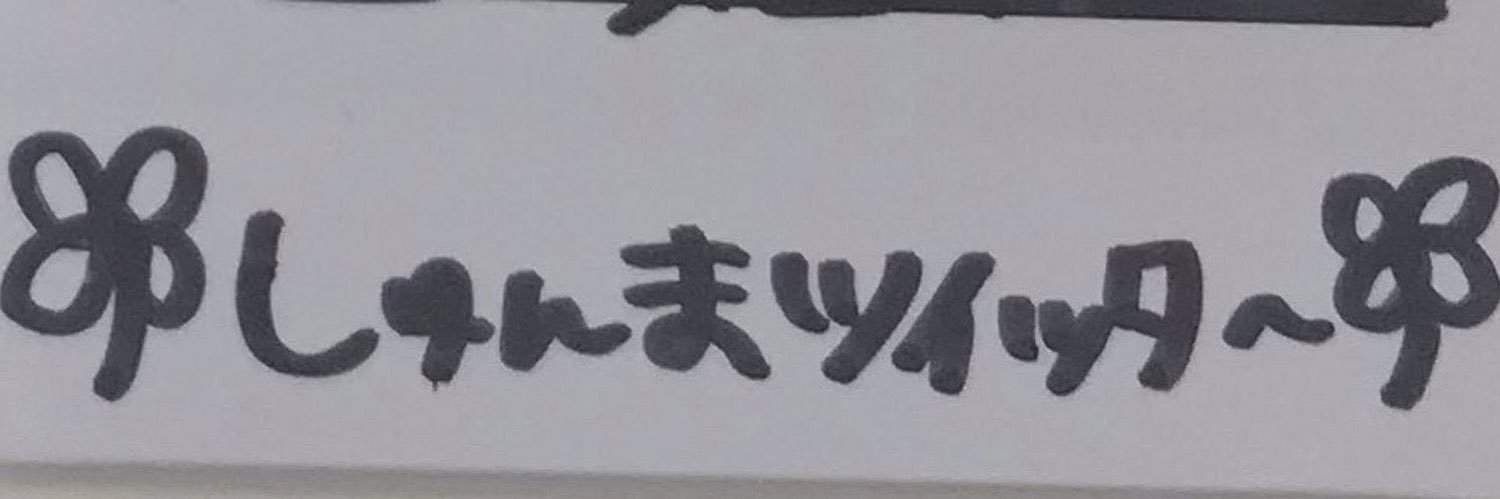 しゅんまツイッター〜